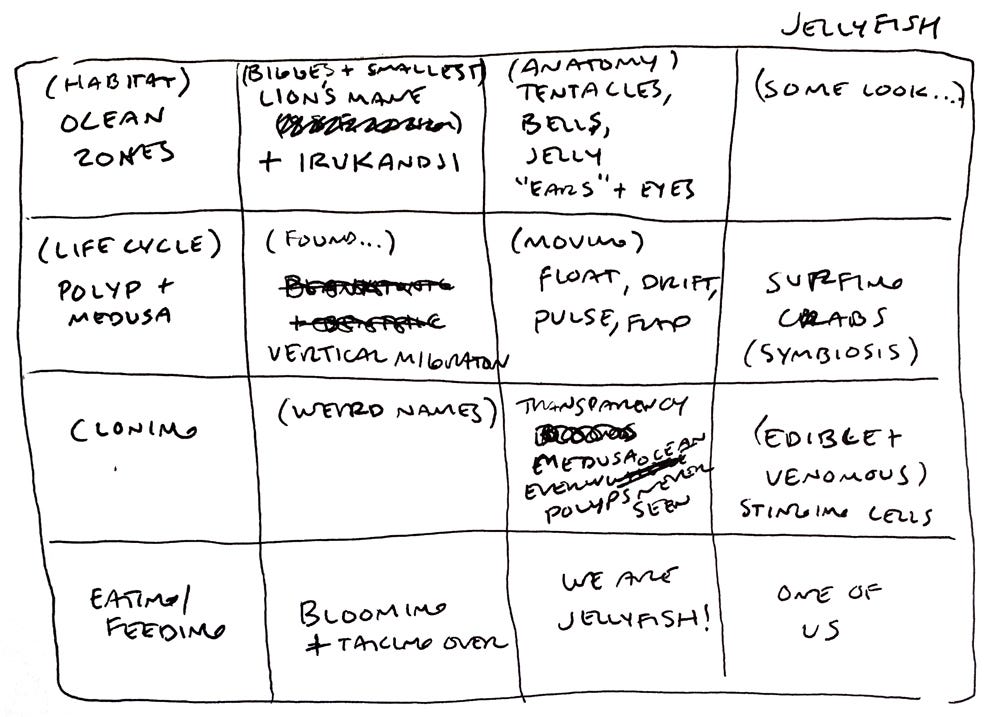 JELLYFISH
(HABITAT)
OCEAN
ZONES
(BIGGES + SMALLEST)
LION'S MANE
+ IRUKANDJI
(ANATOMY)
TENTACLES,
BELLS,
JELLY
"EARS" + EYES
(SOME LOOK...)
(LIFE CYCLE)
POLYP +
MEDUSA
(FOUND...)
VERTICAL MIGRATON
(MOVING)
FLOAT, DRIFT,
PULSE, FLAP
SURFING
CRABS
(SYMBIOSIS)
CLONING
(WEIRD NAMES)
TRANSPARENCY
MEDUSA OCEAN
POLYPS NEVER
SEEN
(EDIBLE +
VENOMOUS)
STINGING CELLS
EATING/
FEEDING
BLOOMING
+ TAKING OVER
WE ARE
JELLYFISH!
ONE OF
US